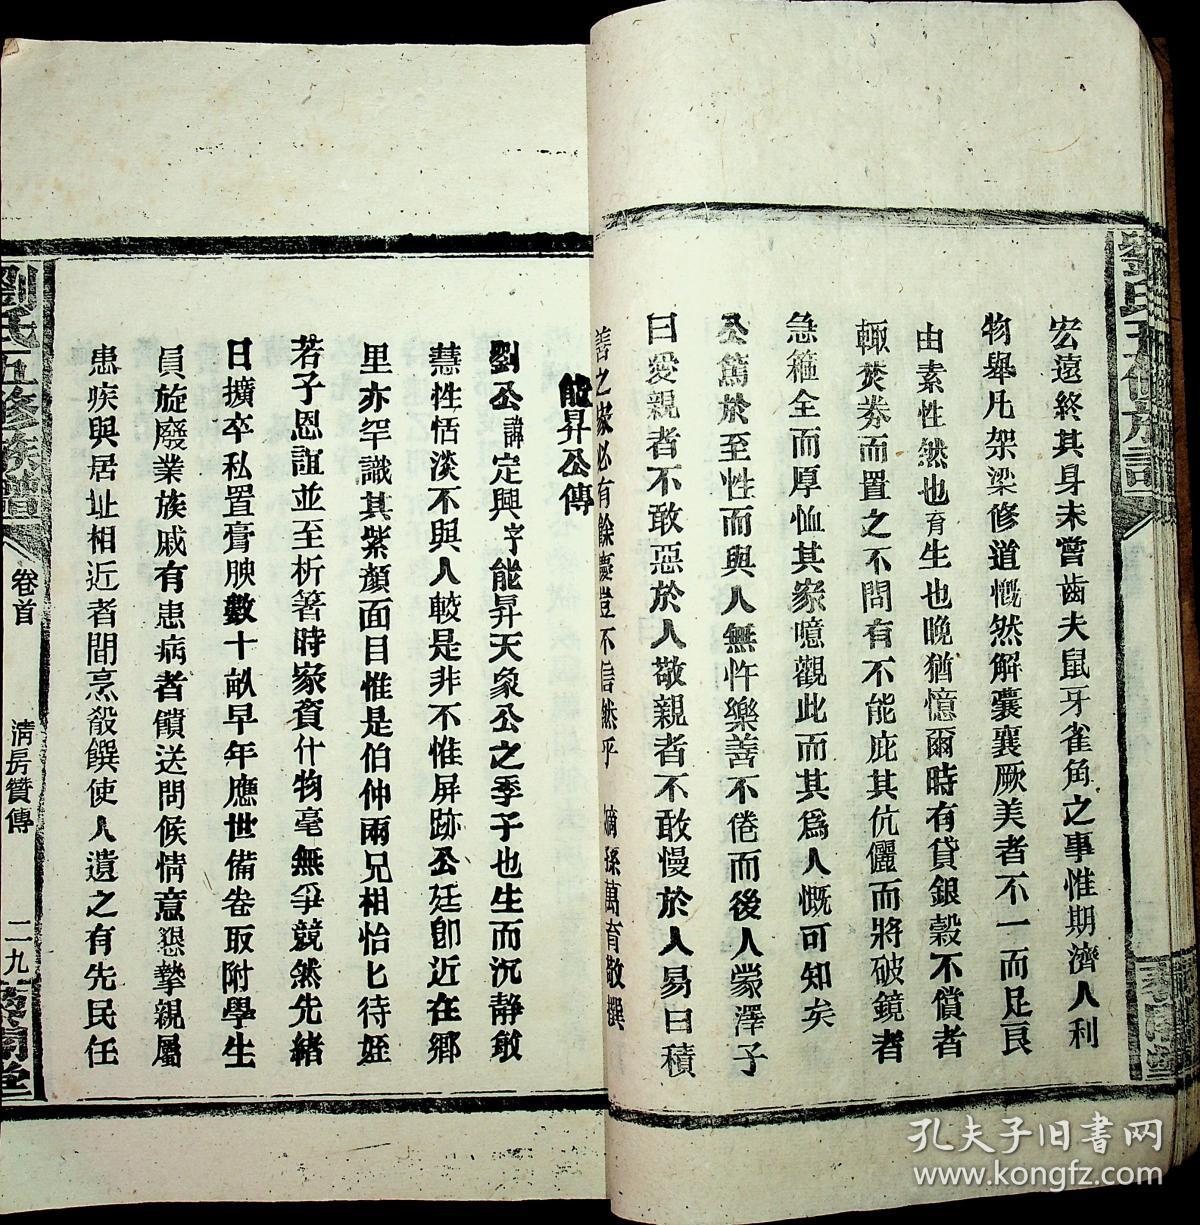 宏遠終其身未嘗齒夫鼠牙雀角之事惟期濟人利
物舉凡架梁修道慨然解囊襄厥美者不一而足良
由素性然也育生也晚猶憶爾時有貸銀穀不償者
輒焚券而置之不問有不能庇其伉儷而將破鏡者
急箍全而厚恤其家噫觀此而其為人慨可知矣
公篤於至性而與人無忤樂善不倦而後人蒙澤子
曰愛親者不敢惡於人敬親者不敢慢於人易曰積
善之家必有餘慶豈不信然乎 嫡孫萬育敬撰
能昇公傳
劉公諱定興字能昇天象公之季子也生而沉静敏
慧性恬淡不與人較是非不惟屏跡公廷卽近在鄉
里亦罕識其紫顏面目惟是伯仲兩兄相怡匕待姪
若子恩誼並至析箸時家資什物毫無爭競然先緒
日擴卒私置膏腴數十畝早年應世備卷取附學生
員旋廢業族戚有患病者饋送問候情意懇摯親屬
患疾與居址相近者間烹殽饌使人遺之有先民任
劉氏五修族譜
卷首
清房贊傳
二九
藜閣堂
孔夫子旧书网
www.kongfz.com